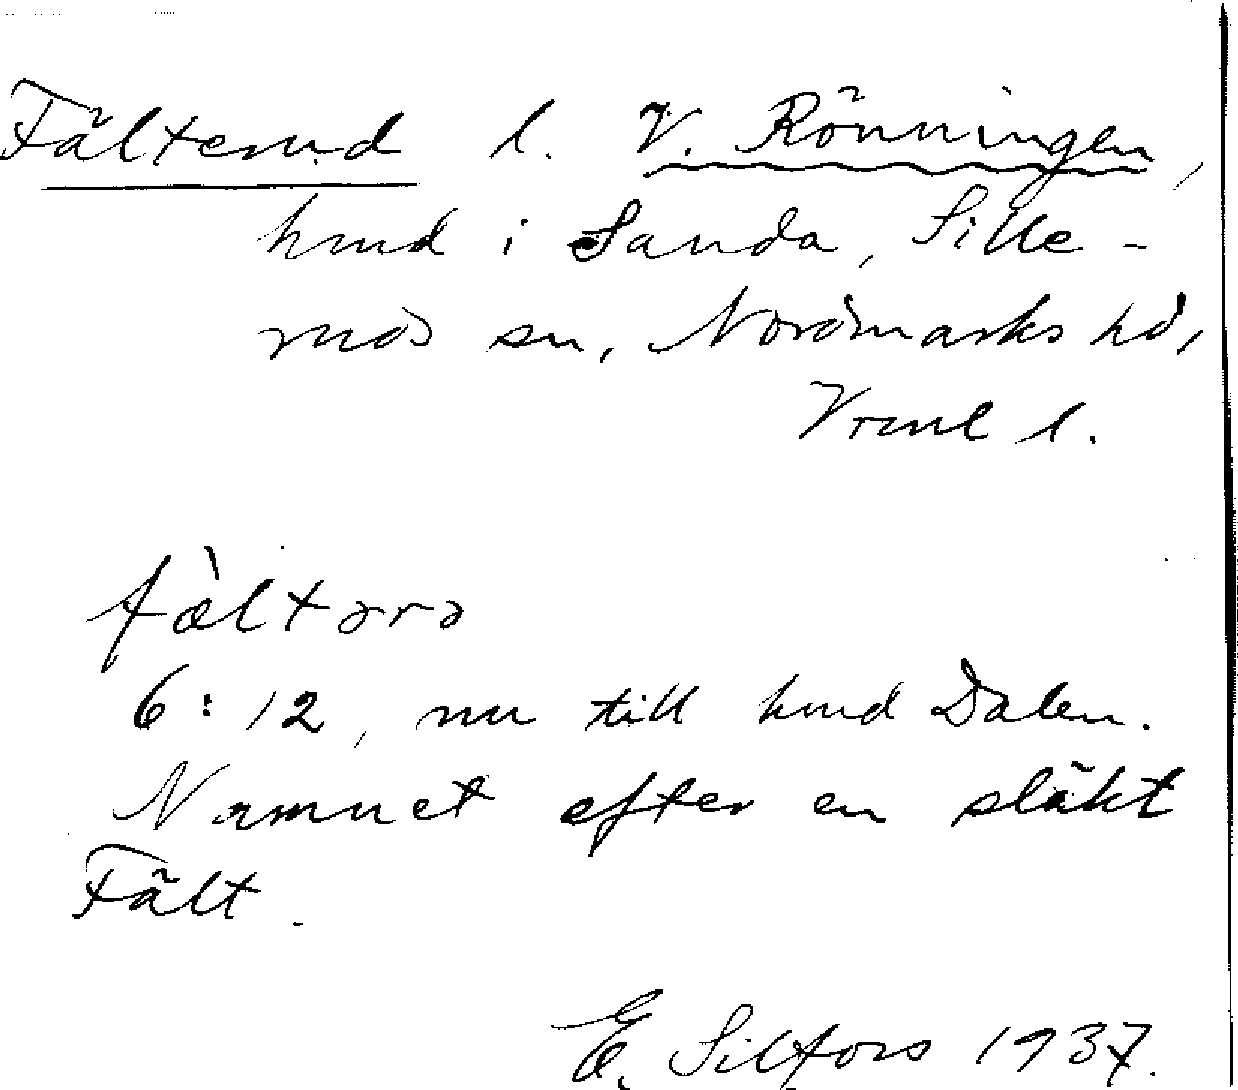 Fälterud l. V. Rönningen,
hmd i Sanda, Sille-
ruds sn, Nordmarks hd,
Vrml l.
fæ̀ltərə
6:12, nu till hmd Dalen.
Namnet efter en släkt
Fält.
E. Silfors 1937.